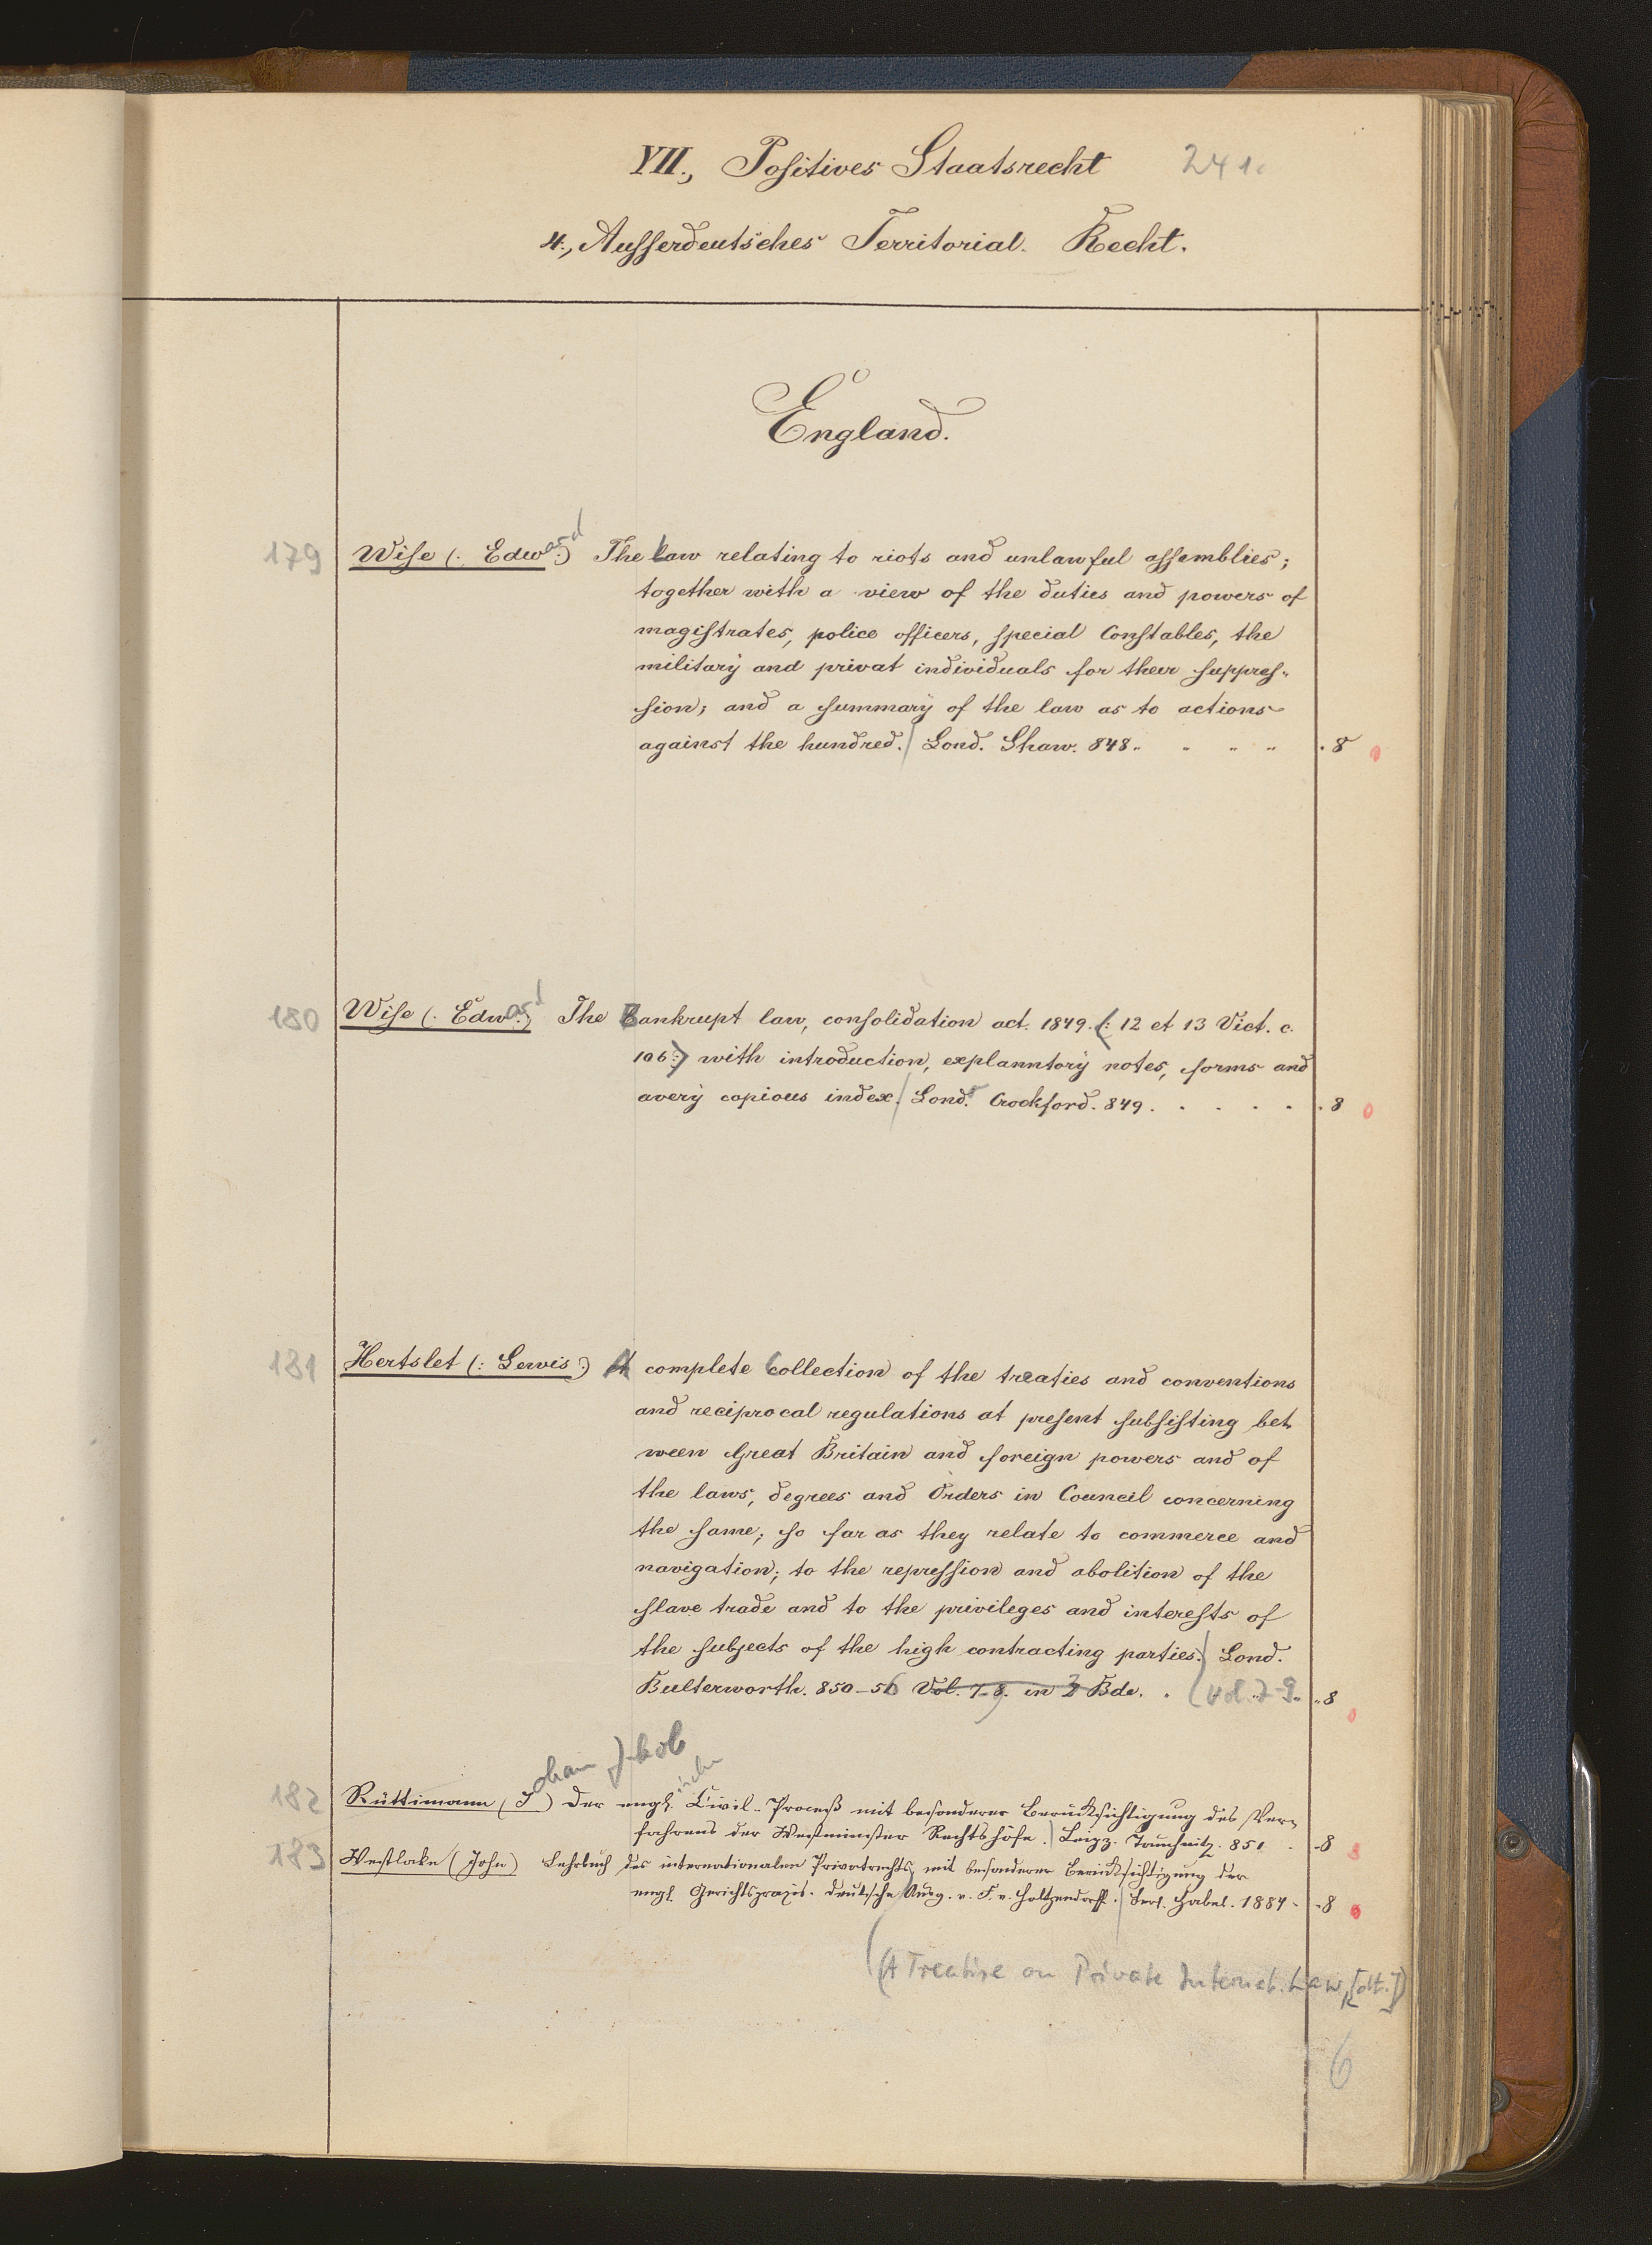 VII., Positives Staatsrecht 241.
4., Ausserdeutsches Territorial. Recht.
England.
179 Wise (: Edward :) The Law relating to riots and unlawful assemblies;
together with a view of the duties and powers of
magistrates, police officers, special Constables, the
military and privat individuals for their suppres-
sion; and a summary of the law as to actions
against the hundred. Lond. Shaw. 848. . 8
180 Wise (: Edward :) The Bankrupt law, consolidation act. 1849. (: 12 et 13 Vict. c.
106 :) with introduction, explanntory notes, forms and
avery copious index. Lond. Crockford. 849. . . . . . 8
181 Hertslet (: Lewis :) A complete Collection of the treaties and conventions
and reciprocal regulations at present subsisting bet-
ween Great Britain and foreign powers and of
the laws, degrees and Orders in Council concerning
the same; so far as they relate to commerce and
navigation; to the repression and abolition of the
slave trade and to the privileges and interests of
the subjects of the high contracting parties. Lond.
Butterworth. 850-56 Vol. 7-8. in 3 Bde. . (Vol. 7-9. 8
ohann Jakob
182 Rüttimann (J) Der englische Civil-Proceß mit besonderer Berücksichtigung des Ver-
fahrens der Westminster Rechtshöfe. Leipz. Tauchnitz. 851. - 8
183 Westlake (John) Lehrbuch des internationalen Privatrechts mit besonderer Berücksichtigung der
engl. Gerichtspraxis. Deutsche Ausg. v. F. v. Holtzendorff. Berl. Habel. 1884 - 8
(A Treatise on Private Internat. Law, [dt.])
6